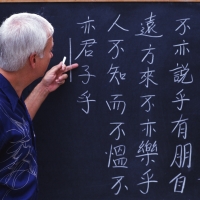 不亦說乎有朋自
遠方來不亦樂乎
人不知而不慍不
亦君子乎